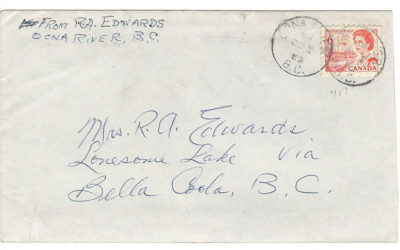 FROM R.A. EDWARDS
OONA RIVER, B.C.
B.C.
CANADA
B.C.
Mrs. R. A. Edwards
Lonesome Lake Via
Bella Coola, B.C.